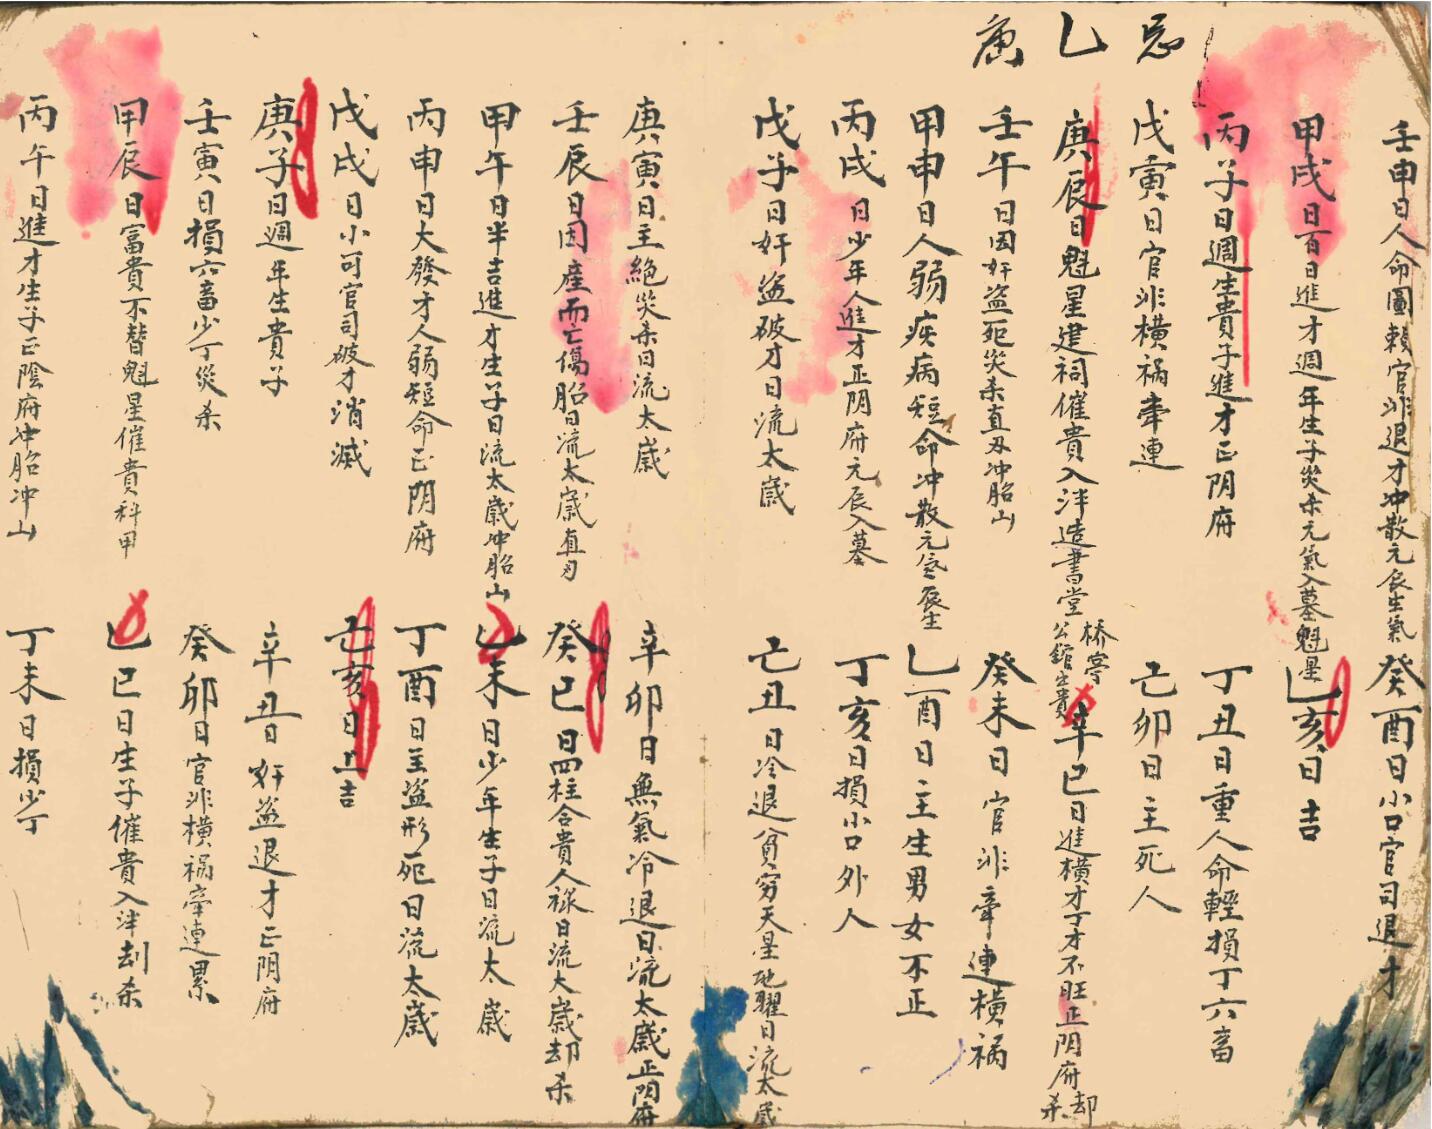 忌乙庚
壬申日人命圖賴官非退才冲散元辰生氣
癸酉日小口官司退才
甲戌日百日進才週年生子災杀元氣入墓魁星
乙亥日吉
丙子日週生貴子進才正阴府
丁丑日重人命輕損丁六畜
戊寅日官非橫禍牽連
己卯日主死人
庚辰日魁星建祠催貴入泮造書堂桥亭公館生貴
辛巳日進橫才丁才不旺正阴府却杀
壬午日因奸盗死災杀直刃冲胎山
癸未日官非牽連橫禍
甲申日人弱疾病短命冲散元氣辰生
乙酉日主生男女不正
丙戌日少年人進才正阴府元辰入墓
丁亥日損小口外人
戊子日奸盗破才日流太歲
己丑日冷退貧穷天星地曜日流太歲
庚寅日主絕災杀日流太歲
辛卯日無氣冷退日流太歲正阴府
壬辰日因產而亡傷胎日流太歲直刃
癸巳日四柱合貴人祿日流太歲却杀
甲午日半吉進才生子日流太歲冲胎山
乙未日少年生子日流太歲
丙申日大發才人弱短命正阴府
丁酉日主盗形死日流太歲
戊戌日小可官司破才消滅
己亥日上吉
庚子日週年生貴子
辛丑日奸盗退才正阴府
壬寅日損六畜少丁災杀
癸卯日官非橫禍牽連累
甲辰日富貴不替魁星催貴科甲
乙巳日生子催貴入泮刦杀
丙午日進才生子正陰府冲胎冲山
丁未日損少丁